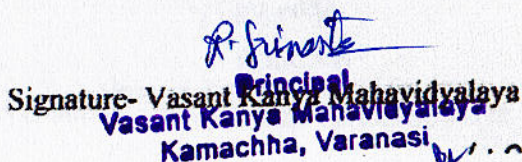 Principal
Signature- Vasant Kanya Mahavidyalaya
Vasant Kanya Mahavidyalaya
Kamachha, Varanasi